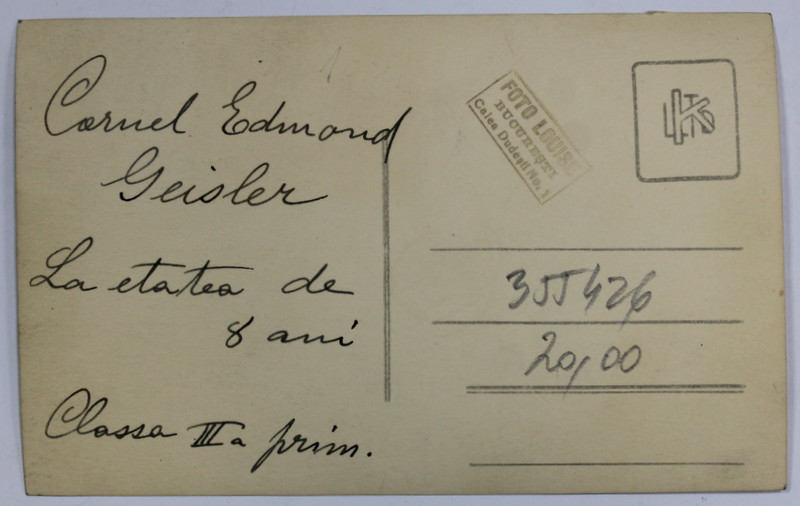 Cornel Edmond
Geisler
La etatea de
8 ani
Classa IIIa prim.
FOTO LOUISE
BUCUREȘTI
Calea Dudești No. 1
355426
20,00